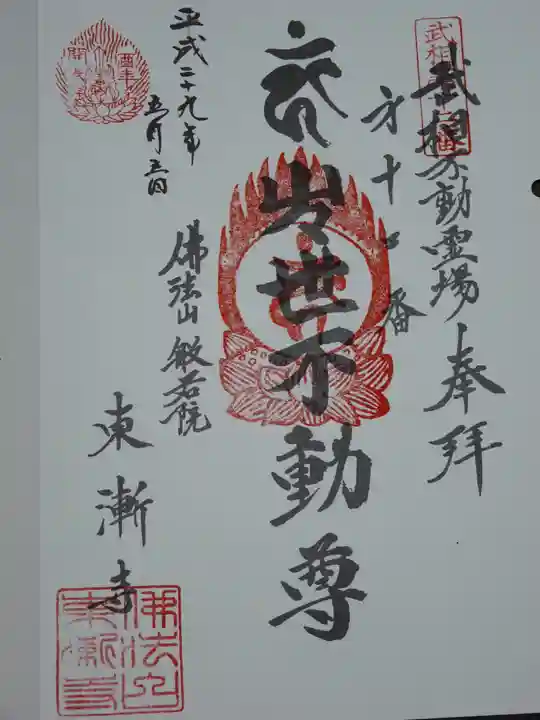 奉拝
武相不動霊場
出世不動尊
平成二十九年
五月三日
佛法山般若院
東漸寺
酉年
開
佛法山
東漸寺